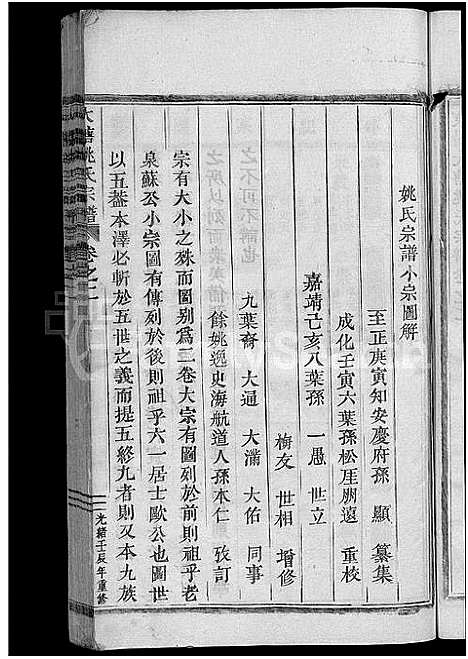 姚氏宗譜小宗圖解
至正庚寅知安慶府孫 顯 纂集
成化壬寅六葉孫松厓朋遠 重校
嘉靖己亥八葉孫 一愚 世立
梅友 世相 增修
九葉裔 大通 大滿 大佑 同事
餘姚逸史海航道人孫本仁 攷訂
宗有大小之殊而圖別爲二卷大宗有圖列於前則祖乎老
泉蘇公小宗圖有傳列於後則祖乎六一居士歐公也圖世
以五蓋本澤必斬於五世之義而提五終九者則又本九族
姚氏宗譜 卷之二
光緒壬辰年重修